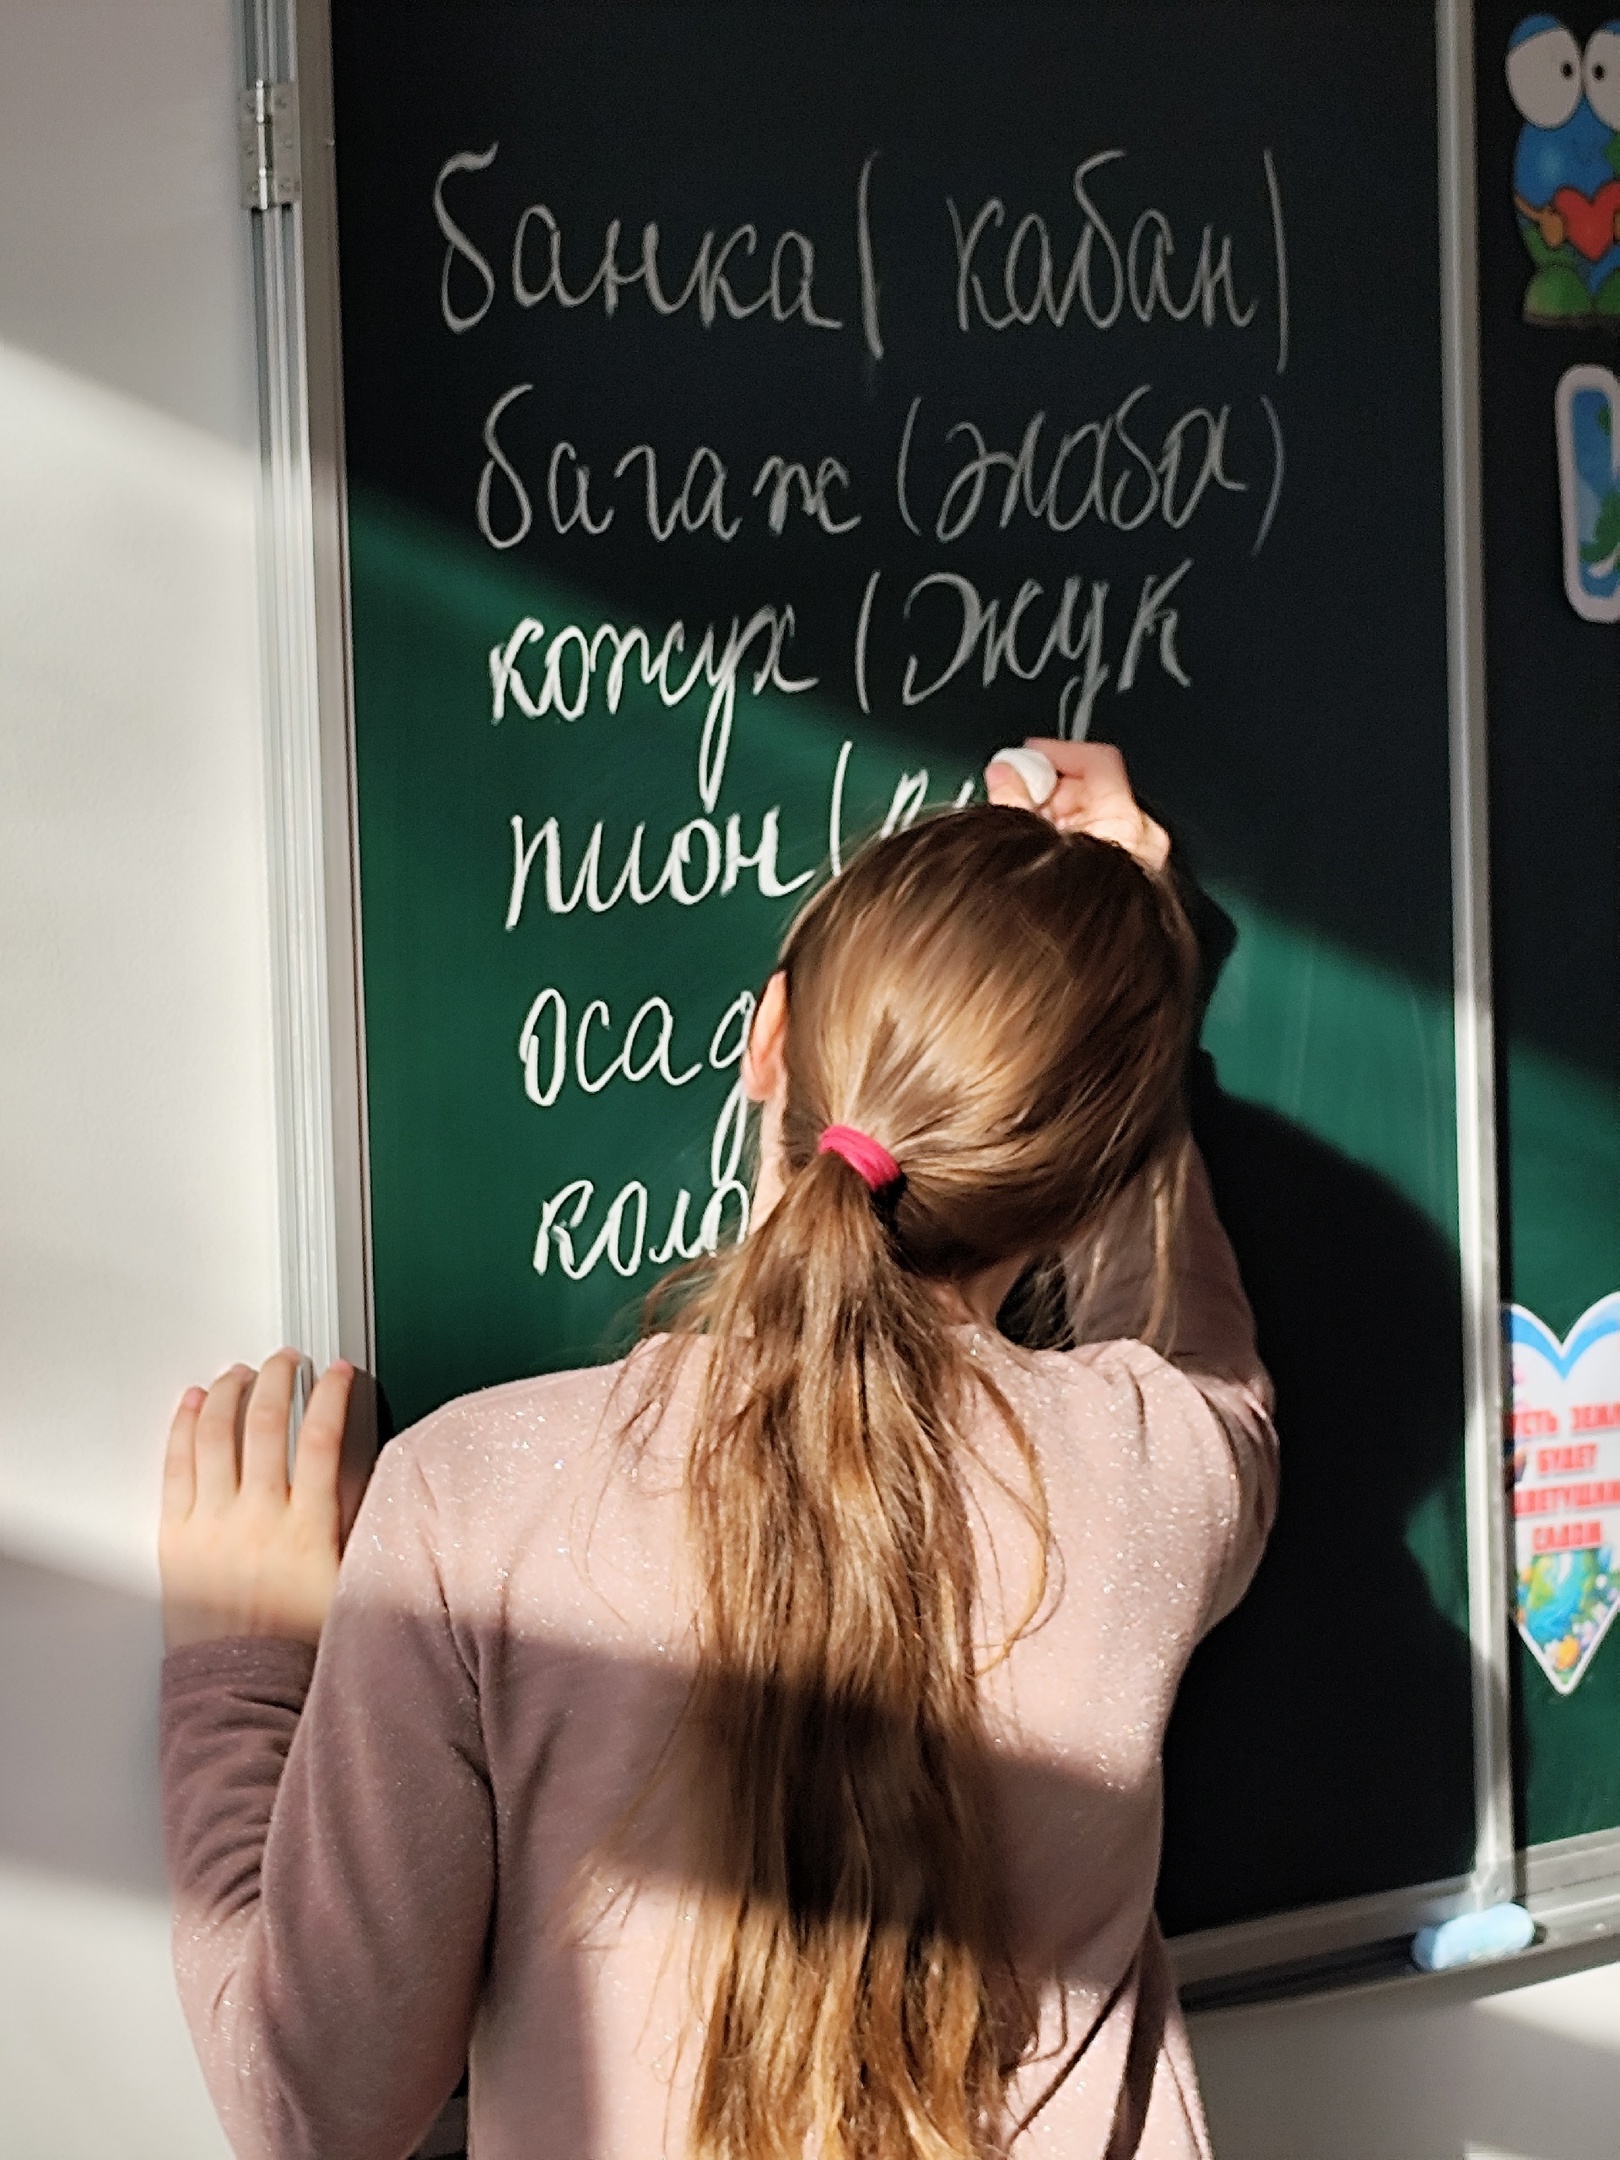 банка (кабан)
багаж (жаба)
кожух (жук
пион (
ПУСТЬ ЗЕМЛЯ
БУДЕТ
ЦВЕТУЩИМ
САДОМ